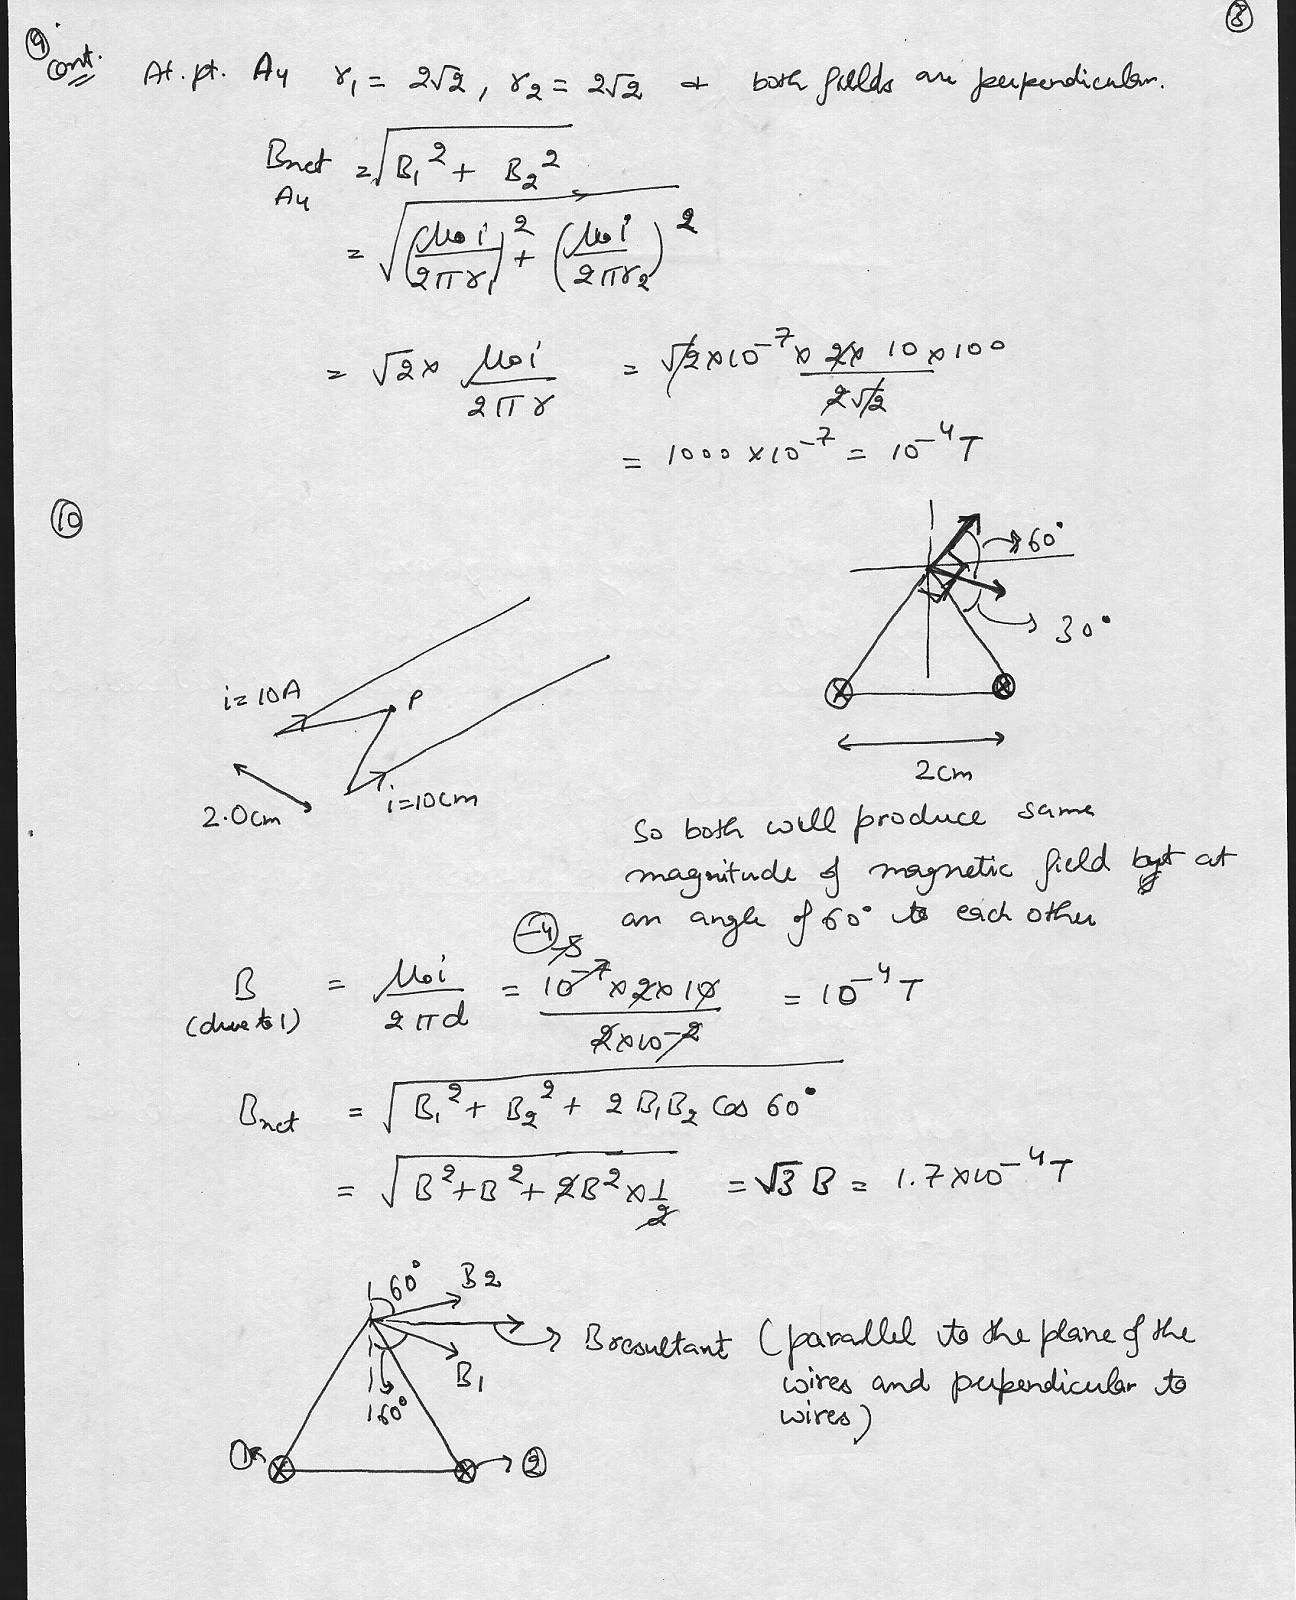 8
9 cont. At. pt. A4 r₁ = 2√2, r₂ = 2√2 + both fields are perpendicular.
Bnet A4 = √(B₁² + B₂²)
= √((μ₀i/2πr₁)² + (μ₀i/2πr₂)²)
= √2 × μ₀i/2πr = √2×10⁻⁷ × 2× 10 × 100 / 2√2
= 1000 × 10⁻⁷ = 10⁻⁴ T
10
60°
30°
i = 10A
P
2.0cm
i = 10cm
2cm
So both will produce same
magnitude of magnetic field but at
an angle of 60° to each other
B (due to 1) = μ₀i/2πd = 10⁻⁷ × 2 × 10 / 2×10⁻² = 10⁻⁴ T
-4
-5
Bnet = √(B₁² + B₂² + 2B₁B₂ Cos 60°)
= √(B² + B² + 2B² × 1/2) = √3 B = 1.7 × 10⁻⁴ T
60° B2
Bresultant (parallel to the plane of the
wires and perpendicular to
wires)
B1
60°
1
2